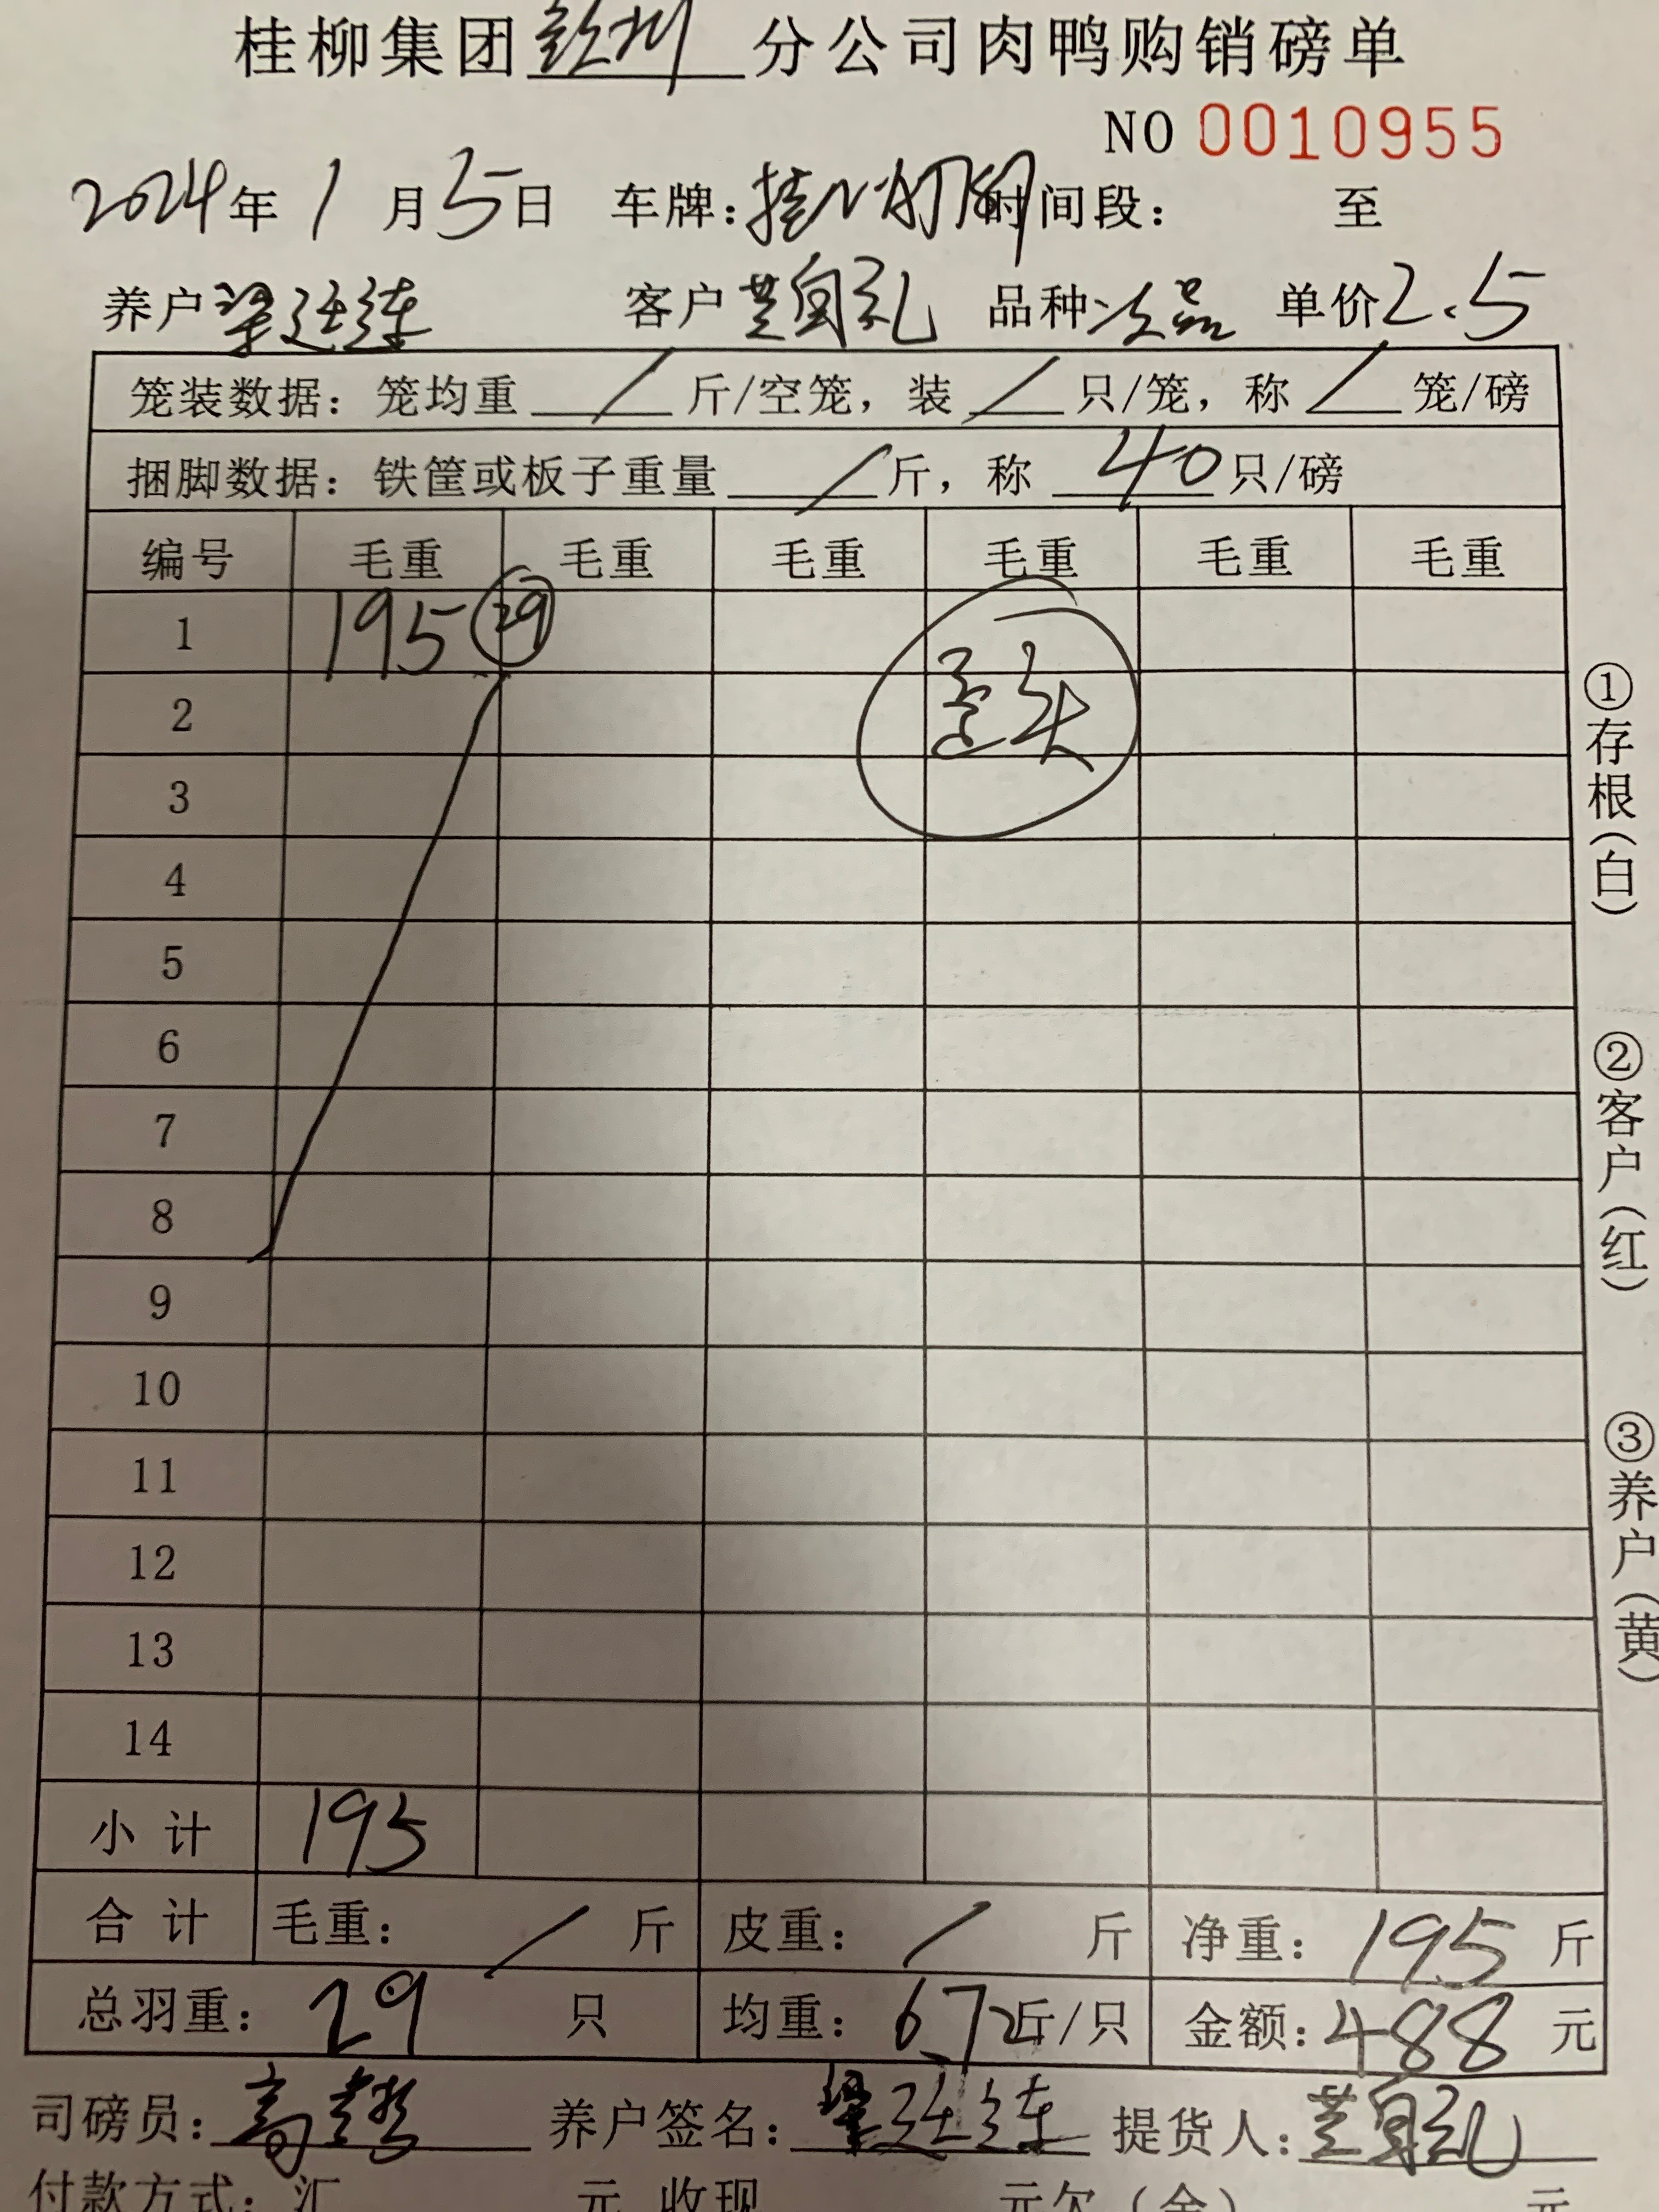 桂柳集团钦州分公司肉鸭购销磅单
NO 0010955
2024年 1 月 5 日 车牌: 时间段: 至
养户 梁廷涛 客户 黄自礼 品种 次品 单价 2.5
笼装数据: 笼均重 / 斤/空笼, 装 / 只/笼, 称 / 笼/磅
捆脚数据: 铁筐或板子重量 / 斤, 称 40 只/磅
编号 毛重 毛重 毛重 毛重 毛重 毛重
1 195 29
2
3
4
5
6
7
8
9
10
11
12
13
14
小计 195
合计 毛重: / 斤 皮重: / 斤 净重: 195 斤
总羽重: 29 只 均重: 6.72 斤/只 金额: 488 元
司磅员: 养户签名: 提货人: 黄自礼
付款方式: 汇 元 收现 元欠(余) 元
①存根(白)
②客户(红)
③养户(黄)